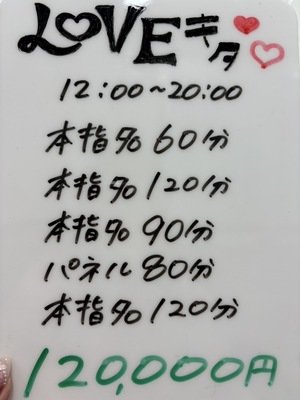 LOVEキタ
12:00~20:00
本指名60分
本指名120分
本指名90分
パネル80分
本指名120分
120,000円